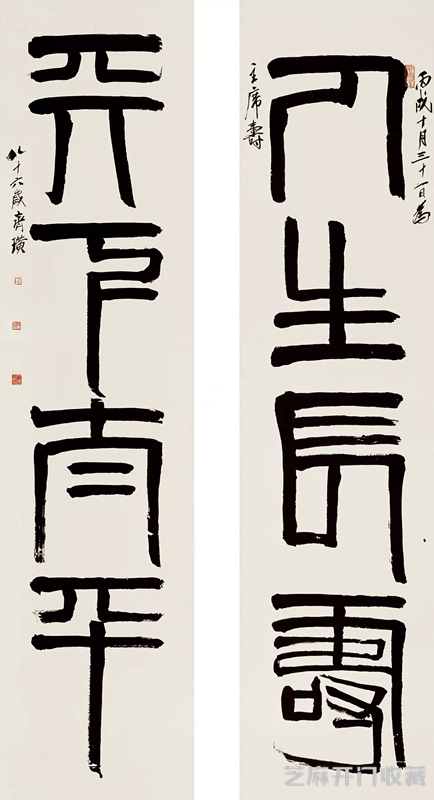 丙戌十月三十一日為
人生長壽
主席壽
天下太平
八十六歲齊璜
芝麻开门收藏